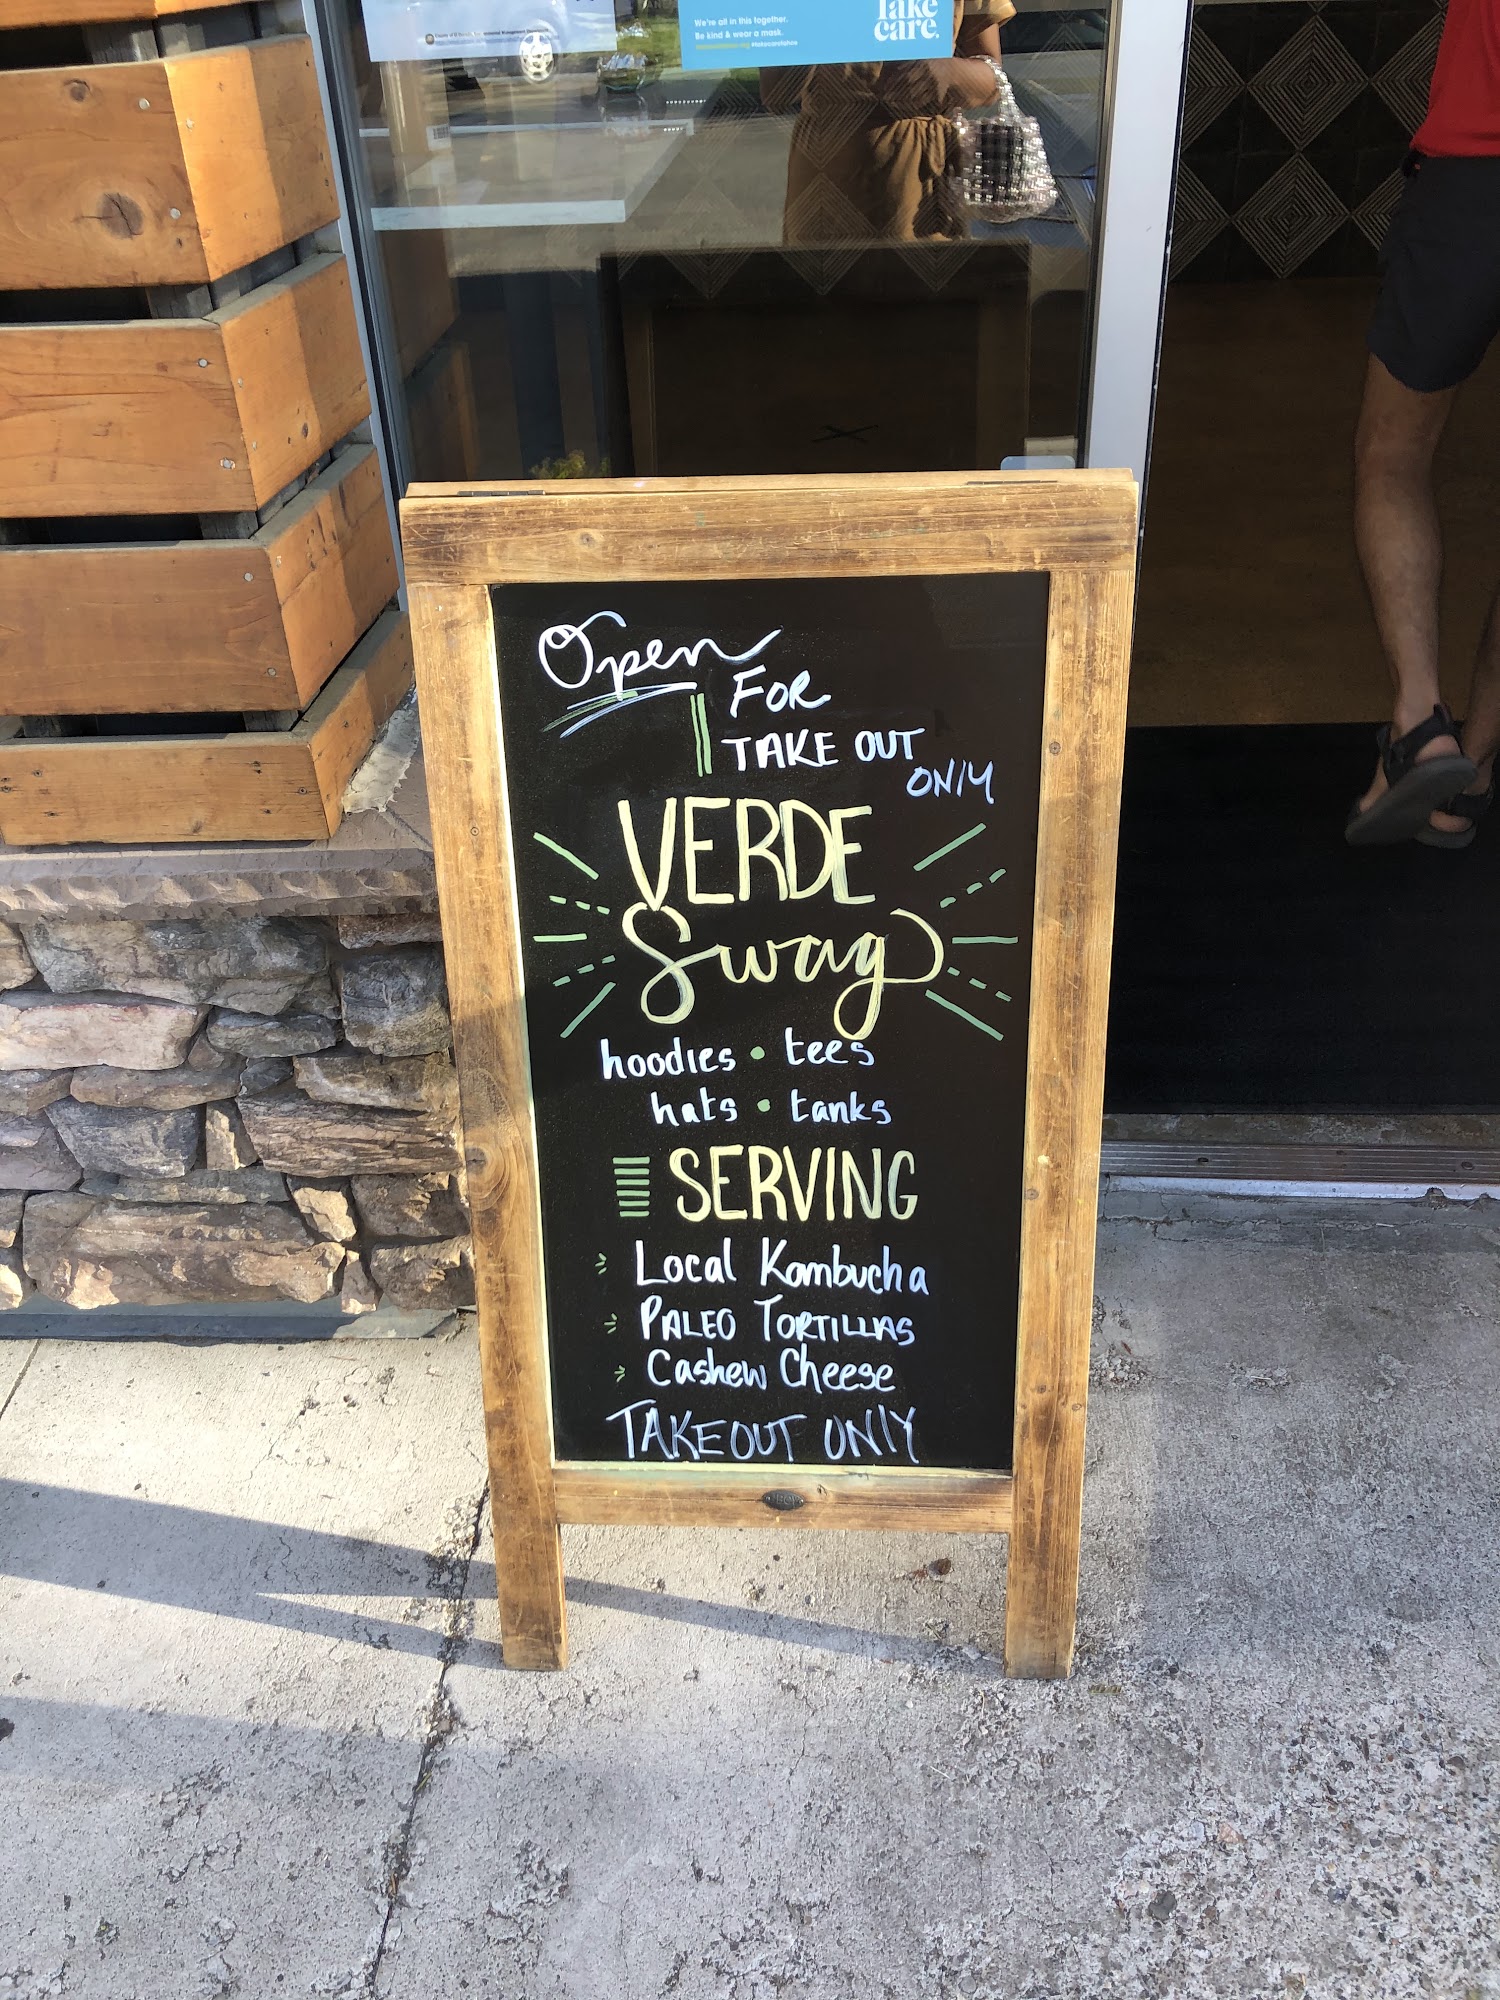 We're all in this together.
Be kind & wear a mask.
#takecaretahoe
Take
care.
Open
FOR
TAKE OUT
ONLY
VERDE
Swag
hoodies • tees
hats • tanks
SERVING
Local Kombucha
PALEO TORTILLAS
Cashew Cheese
TAKEOUT ONLY